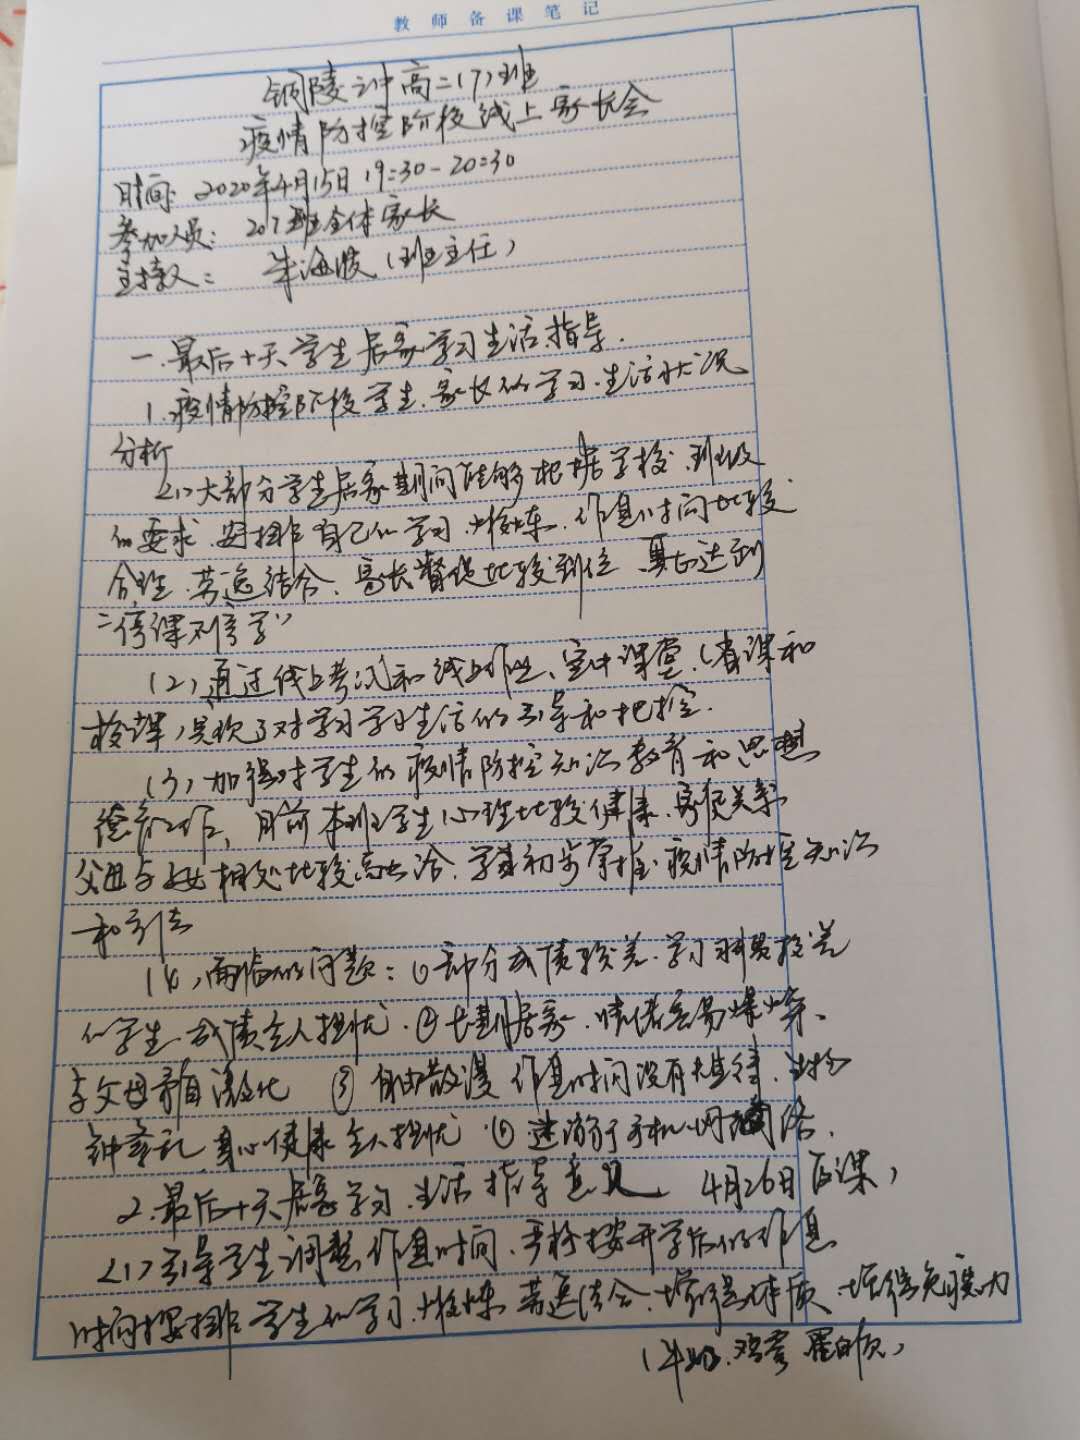 教师备课笔记
铜陵三中高二(7)班
疫情防控阶段线上家长会
时间: 2020年4月15日 19:30-20:30
参加人员: 207班全体家长
主持人: 朱海波(班主任)
一.最后十天学生居家学习生活指导.
1.疫情防控阶段学生、家长的学习.生活状况
分析
(1)大部分学生居家期间能够根据学校、班级
的要求,安排自己的学习.锻炼.作息时间比较
合理.劳逸结合、家长督促比较到位 真正达到
"停课不停学"
(2)通过线上考试和线上作业、空中课堂.(看课和
授课)实现了对学习学习生活的引导和把控.
(3)加强对学生的疫情防控知识教育和思想
德育工作,目前本班学生心理比较健康.家庭关系
父母子女相处比较融洽.学生初步掌握疫情防控知识
和方法
(4)面临的问题:①部分成绩较差.学习习惯较差
的学生.成绩令人担忧.②长期居家.情绪容易爆燥、
与父母矛盾激化 ③自由散漫 作息时间没有规律.生物
钟紊乱 身心健康令人担忧.④迷溺于手机.网络.
2.最后十天居家学习.生活指导意见 4月26日复课)
(1)引导学生调整作息时间.严格按开学后的作息
时间安排学生的学习.锻炼 劳逸结合.增强体质.增强免疫力